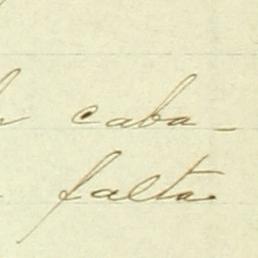 caba-
falta